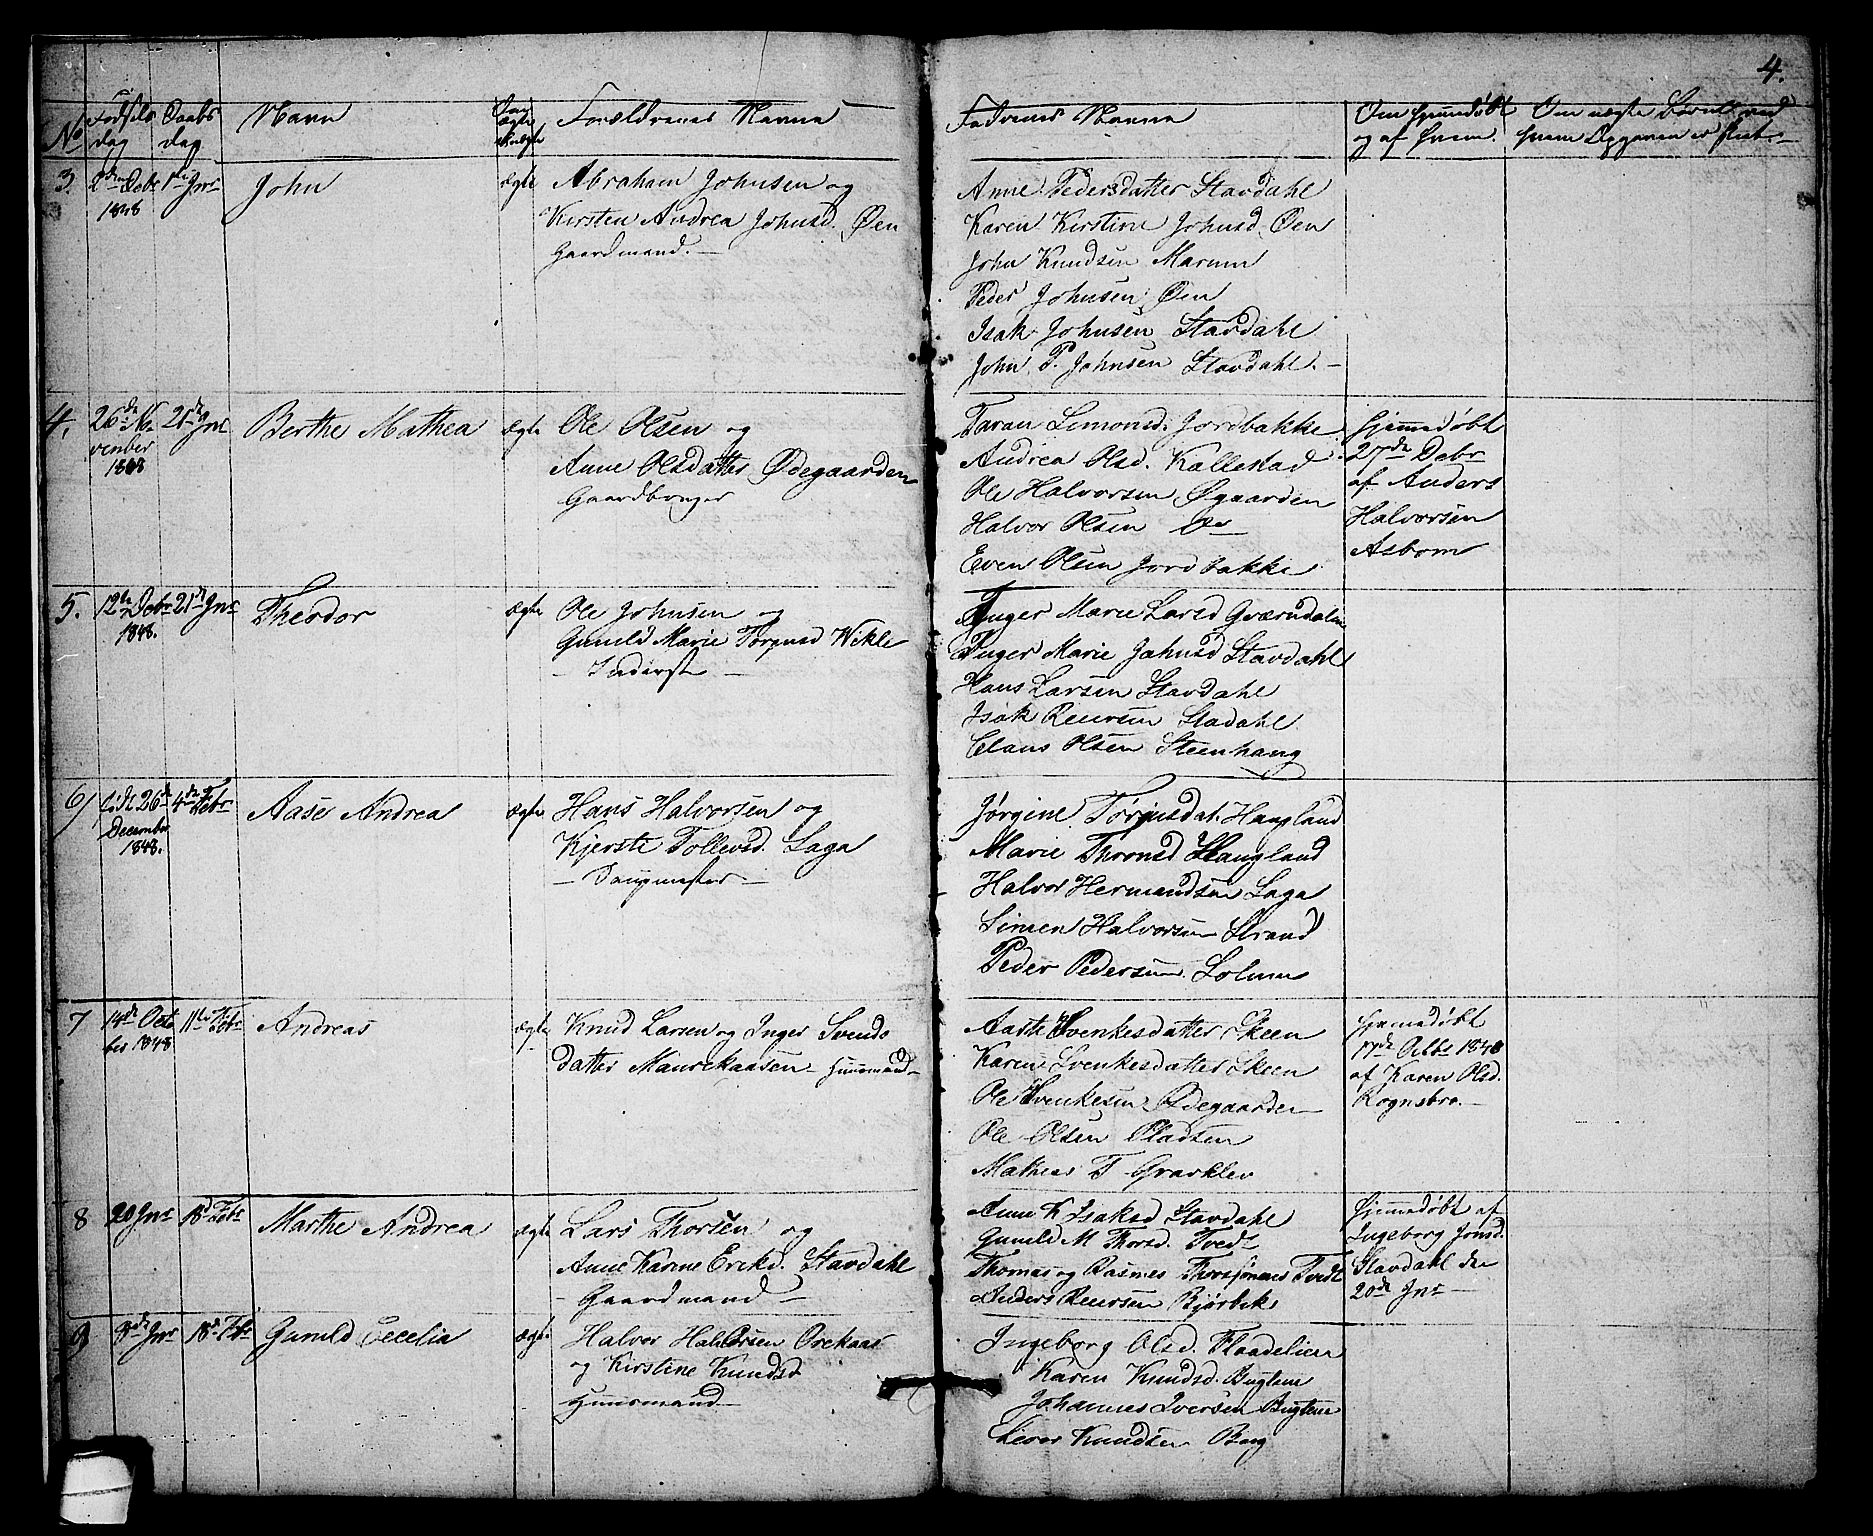 4.
No Fødsels dag Daabs dag Navn Om ægte Forældrenes Navne Fadrenes Navne Om hjemdøbt og af hvem. Om uægte
3. 2den Decbr 1848 1ste Jnr John ægte
Abraham Johnsen og
Kirsten Andrea Johnsd. Øen
Gaardmand.
Anne Pedersdatter Stavdahl
Karen Kirstine Johnsd. Øen
John Knudsen Marum
Peder Johnsen Øen
Isak Johnsen Stavdahl
John P. Johnsen Stavdahl.
4. 26de November 1848 21de Jnr Berthe Mathea ægte
Ole Olsen og
Anne Olsdatter Ødegaarden
Gaardbruger
Taran Simonsd. Jordbakke
Andrea Olsd. Kallestad
Ole Halvorsen Øgaarden
Halvor Olsen Do
Even Olsen Jordbakke
Hjemmedøbt
27de Debr
af Anders
Halvorsen
Asbom
5. 12te Decbr 1848. 21de Jnr Theodor ægte
Ole Johnsen og
Gunild Marie Torjusd Wikle
Inderst
Inger Marie Larsd
Inger Marie Johnsd Stavdahl
Hans Larsen Stavdahl
Isak Reiersen Stadahl
Claus Olsen Steenhaug
6) 26de December 1848. 4de Febr Aase Andrea ægte
Hans Halvorsen og
Kjersti Tollevsd. Laga
Jørgine Torjusdat. Haugland
Marie Thronsd Haugland
Halvor Hermandsen Laga
Simen Halvorsen Strand
Peder Pedersen Solum
7 14de October 1848 11te Febr Andreas ægte
Knud Larsen og Inger Svends
datter Maurekaasen Huusmand
Aaste Svenkesdatter Skeen
Karen Svenkesdatter Skeen
Ole Svenkesen Ødegaarden
Ole Olsen Pladsen
Mathias T. Graaklev
Hjemmedøbt
17de Octbr 1848
af Karen Olsd.
Rognsbro.
8 20 Jnr 18de Febr Marthe Andrea ægte
Lars Thorsen og
Anne Karine Eriksd. Stavdahl
Gaardmand
Anne K Isaksd Stavdahl
Gunild M Thorsd. Tvedt
Thomas og Rasmus Thorsjønnes Tvedt
Anders Reiersen Bjørbek
Hjemmedøbt af
Ingeborg Jonsd.
Stavdahl den
20de Jnr
9 9de Jnr 18de Febr Gunild Cecelia ægte
Halvor Halvorsen Orekaas
og Kirstine Knudsd
Huusmand
Ingeborg Olsd. Flaadelien
Karen Knudsd. Bugten
Johannes Iversen Bugten
Knudsen Berg